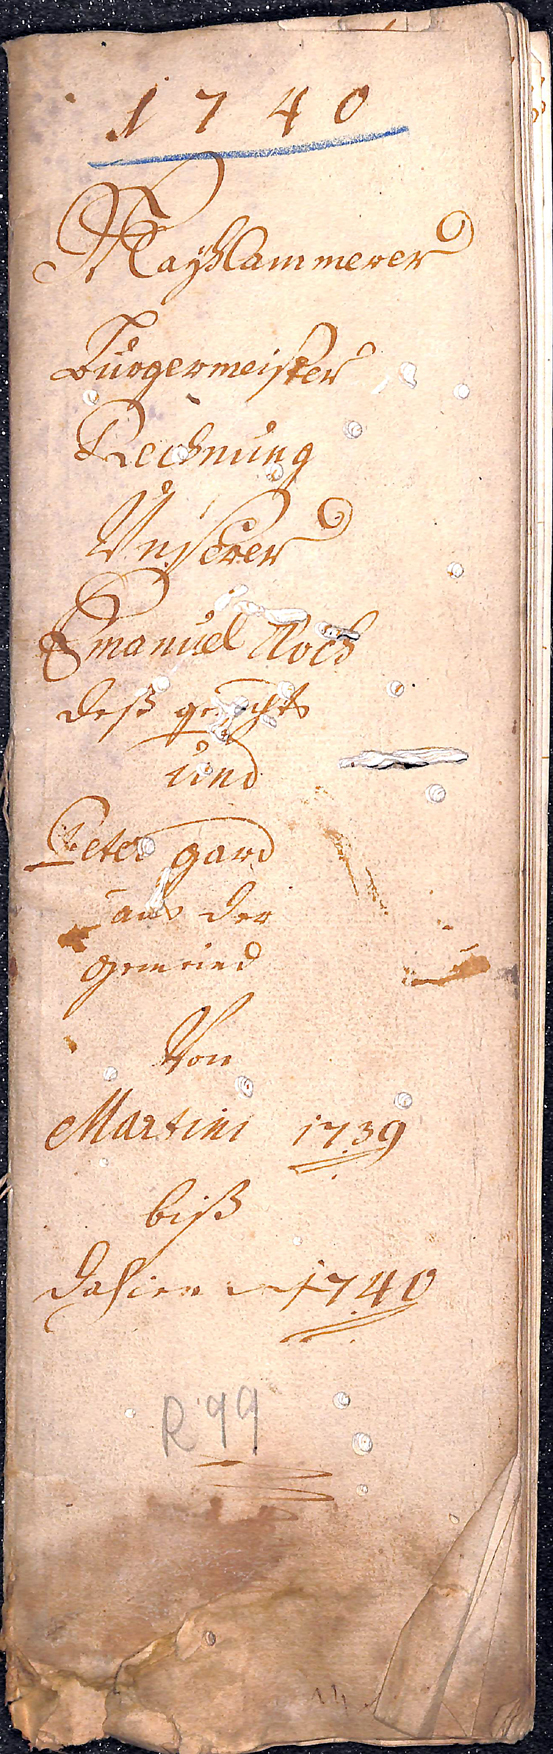 1740
Maykammerer
Burgermeister
Rechnung
Unserer
Emanuel Koch
deß gerichts
und
Peter gard
aus der
gemeind
Von
Martini 1739
biß
dahien 1740
R 99